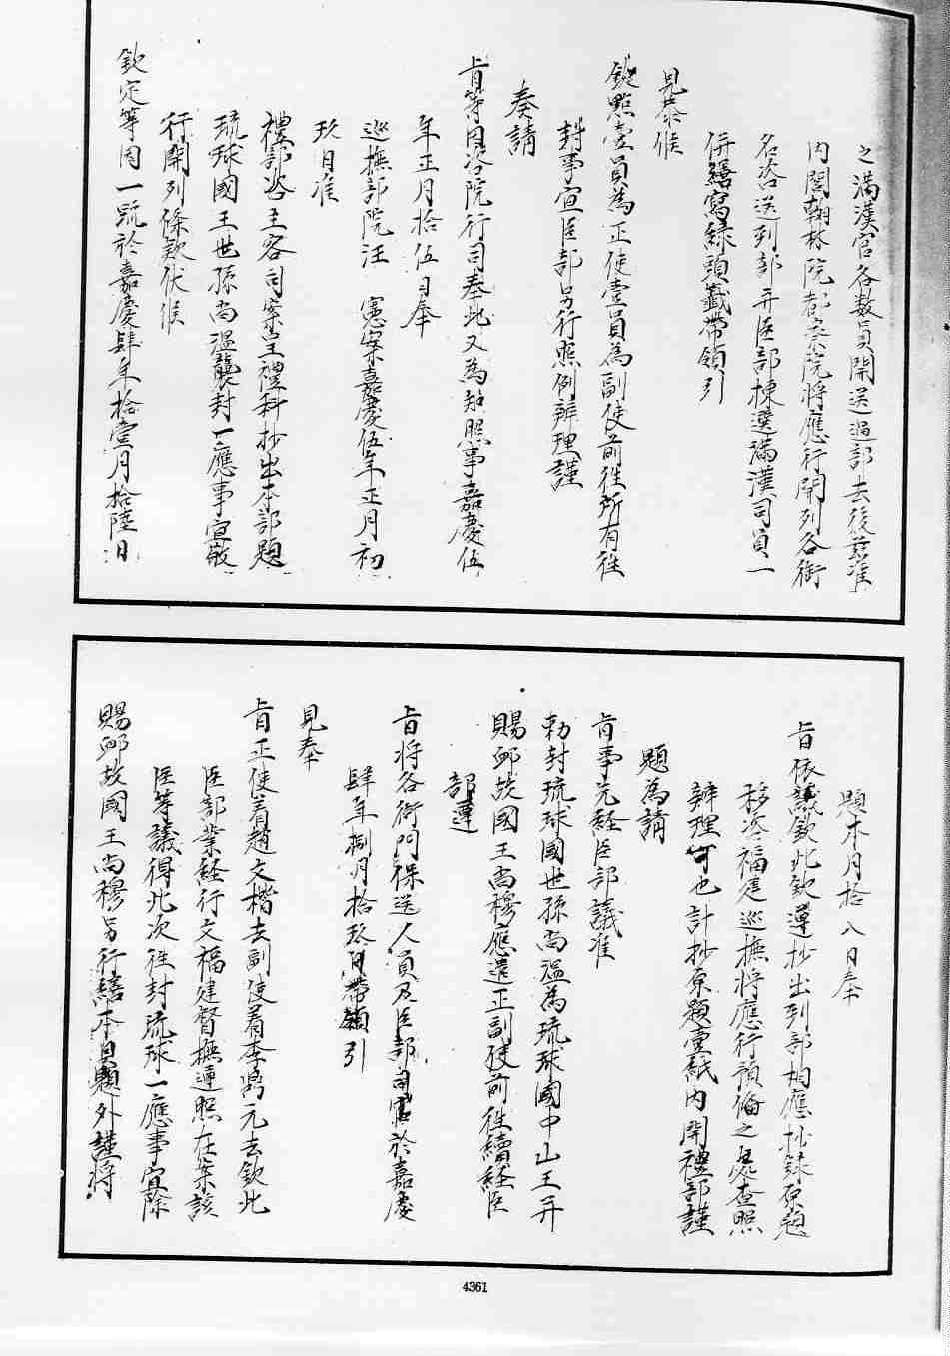 之滿漢官各數員開送過部去後兹准
內閣翰林院都察院將應行開列各銜
名咨送到部并臣部揀選滿漢司員一
併繕寫綠頭籤帶領引
見恭候
欽點壹員為正使壹員為副使前往所有往
封事宜臣部另行照例辦理謹
奏請
旨等因咨院行司奉此又為知照事嘉慶伍
年正月拾伍日奉
巡撫部院汪 憲案嘉慶伍年正月初
玖日准
禮部咨主客司案呈禮科抄出本部題
琉球國王世孫尚溫襲封一應事宜敬
行開列條款伏候
欽定等因一疏於嘉慶肆年拾壹月拾陸日
題本月拾八日奉
旨依議欽此欽遵抄出到部相應抄錄原題
移咨福建巡撫將應行預備之處查照
辦理可也計抄原題壹紙內開禮部謹
題為請
旨事先經臣部議准
勅封琉球國世孫尚溫為琉球國中山王并
賜卹故國王尚穆應遣正副使前往續經臣
部遵
旨將各衙門保送人員及臣部司官於嘉慶
肆年捌月拾玖日帶領引
見奉
旨正使着趙文楷去副使着李鼎元去欽此
臣部業經行文福建督撫遵照在案該
臣等議得此次往封琉球一應事宜除
賜卹故國王尚穆另行繕本具題外謹將
4361